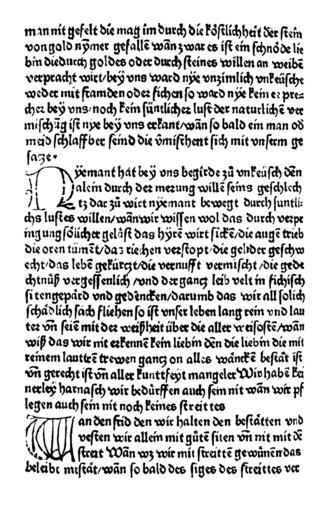 man nit gefelt die mag im durch die köstlichheit der stein
von gold nymer gefallē wan zwar es ist ein schnöde lie
bin die durch goldes oder durch steines willen an weibē
verpracht wirt/bey vns ward nye vnzimlich vnkeüsche
weder mit framden oder sichen so ward nye kein ee pre⸗
cher bey vns/noch kein süntlicher lust der naturlichē ver
mischūg ist nye bey vns erkant/wān so bald ein man od
meid schlaffber seind die vmischent sich mit vnserm ge
satze.
Nyemant hat bey vns begirde zū vnkeüsch den
alein durch der merung willē seins geschlech
tz dar zū wirt nyemant bewegt durch suntli⸗
chs lustes willen/wān wir wissen wol das durch verpe
ingung sölicher gelüst das hyre wirt sickē/die augē trieb
die oren tüment/das riechen verstopt/die gelider geschw
echt/das lebē gekürtzt/die vernufft vermischt/die gede
chtnüß vergessenlich/vnd der gantz leib velt in sichisch
sitten gepärd vnd gedencken/darumb das wir all solich
schädlich sach fliehen so ist vnser leben lang rein vnd lau
ter vn̄ seien mit der weißheit über die aller weisostē/wān
wiß das wir nit erkennē kein liebin den die liebin die mit
reinem lauttrē trewen gantz on alles wanckē bestät ist
vn̄ gerecht ist vn̄ aller kunttfeyt mangeler Wir habē kei
nerley harnasch wir bedürffen auch sein nit wān wir pf
legen auch sein nit noch keines streittes
Wan den frid den wir halten den bestätten vnd
vesten wir allein mit gūtē siten vn̄ nit mit dē
streit Wan wz wir mit streittē gewūnen das
beleibt nit stät/wān so bald des siges des streittes ver